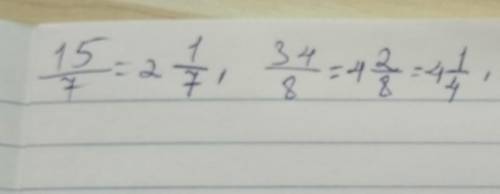 15/7 = 2 1/7, 34/8 = 4 2/8 = 4 1/4,